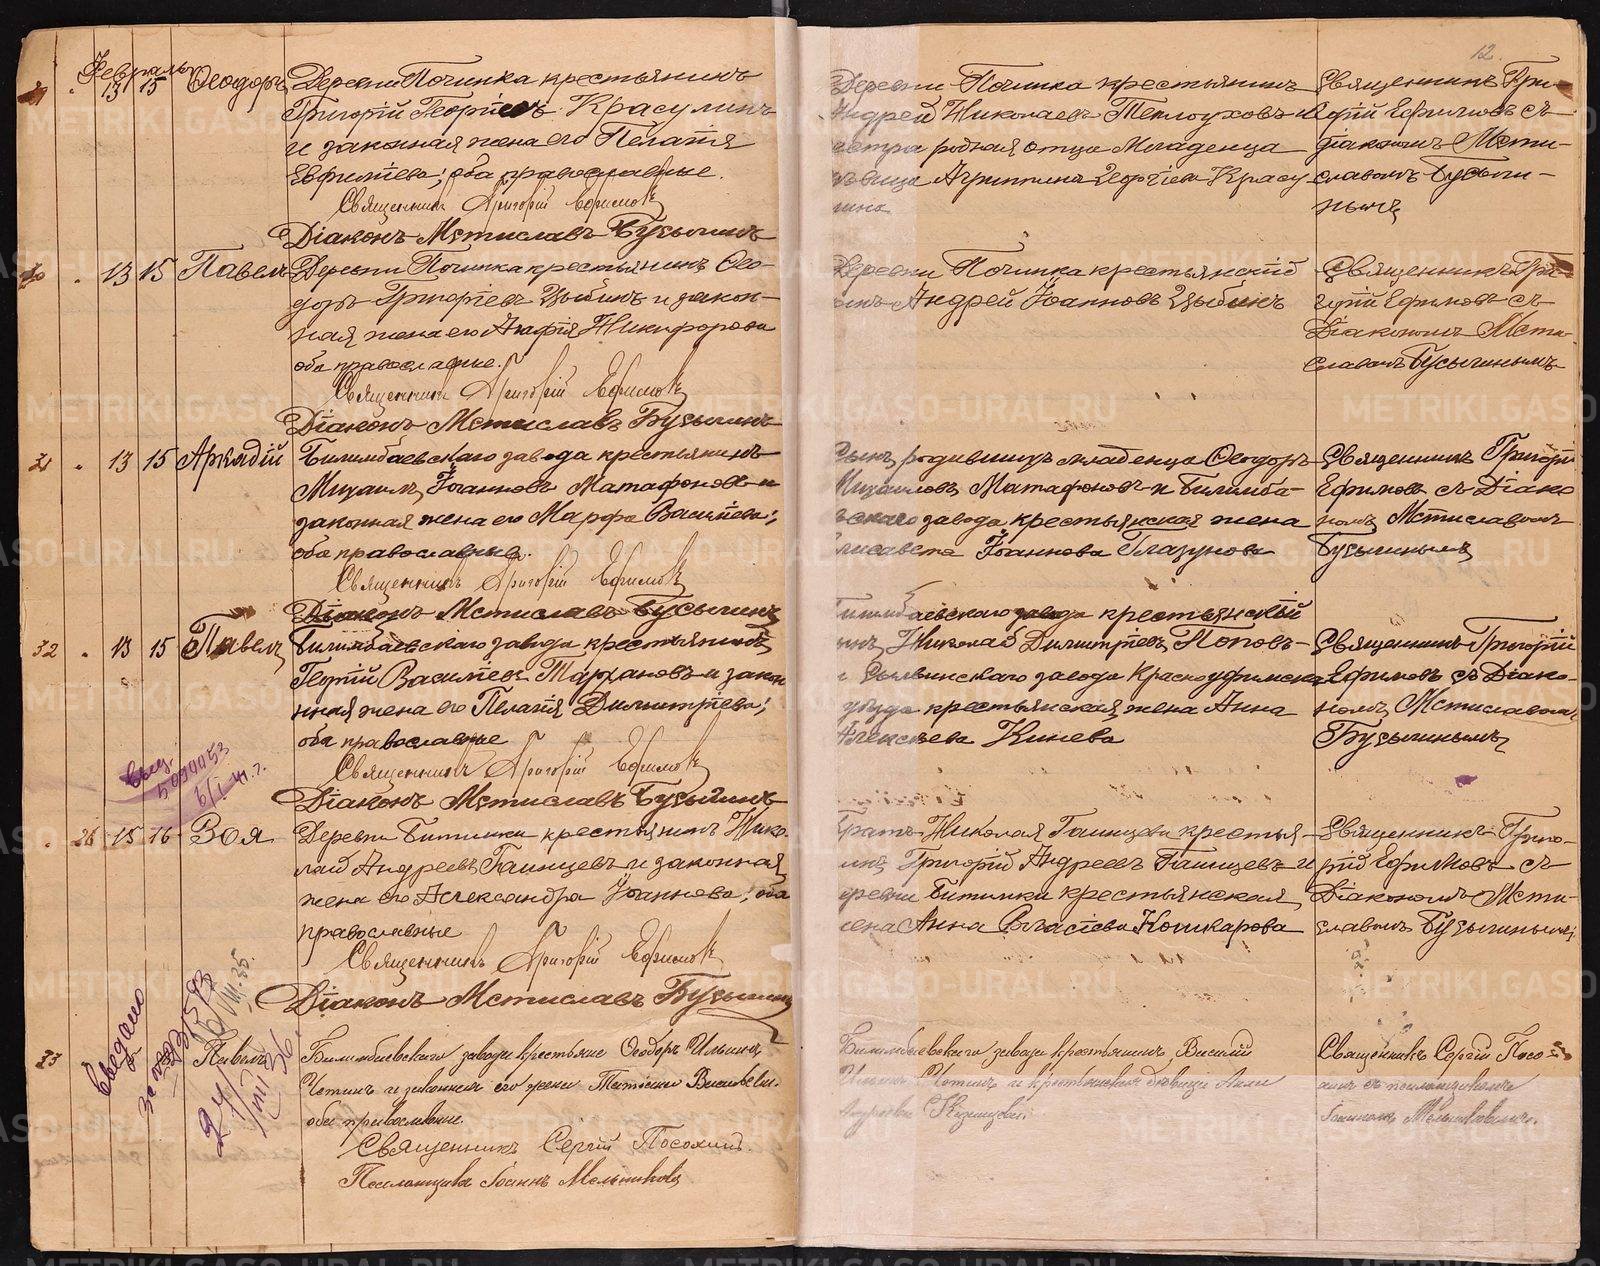 12
Февраль
29 . 13 15 Ѳеодоръ
Деревни Починка крестьянинъ
Григорій Георгіевъ Красулинъ
и законная жена его Пелагія
Евфиміева; оба православные.
Священникъ Григорій Ефимовъ
Діаконъ Мстиславъ Бусыгинъ
Деревни Починка крестьянинъ
Андрей Николаевъ Теплоуховъ и
сестра родная отца младенца
дѣвица Агриппина Георгіева Красу-
лина
Священникъ Гри-
горій Ефимовъ съ
діакономъ Мсти-
славомъ Бусыги-
нымъ
30 . 13 15 Павелъ
Деревни Починка крестьянинъ Ѳео-
доръ Григорьевъ Цыбинъ и закон-
ная жена его Агафія Никифорова
оба православные.
Священникъ Григорій Ефимовъ
Діаконъ Мстиславъ Бусыгинъ
Деревни Починка крестьянскій
сынъ Андрей Іоанновъ Цыбинъ
Священникъ Гри-
горій Ефимовъ съ
Діакономъ Мсти-
славомъ Бусыгинымъ
31 . 13 15 Аркадій
Билимбаевскаго завода крестьянинъ
Михаилъ Іоанновъ Матафоновъ и
законная жена его Марфа Васильева;
оба православные.
Священникъ Григорій Ефимовъ
Діаконъ Мстиславъ Бусыгинъ
Сынъ родившихъ младенца Ѳеодоръ
Михаиловъ Матафоновъ и Билимба-
евскаго завода крестьянская жена
Елисавета Іоаннова Глазунова
Священникъ Григорій
Ефимовъ съ Діако-
номъ Мстиславомъ
Бусыгинымъ
32 . 13 15 Павелъ
Билимбаевскаго завода крестьянинъ
Георгій Васильевъ Тархановъ и закон-
нная жена его Пелагія Димитріева;
оба православные
Священникъ Григорій Ефимовъ
Діаконъ Мстиславъ Бусыгинъ
Билимбаевскаго завода крестьянскій
сынъ Николай Димитріевъ Поповъ
и Сылвинскаго завода Красноуфимска
уѣзда крестьянская жена Анна
Алексѣева Кинева
Священникъ Григорій
Ефимовъ съ Діако-
номъ Мстиславомъ
Бусыгинымъ
. 26 15 16 Зоя
Деревни Битимки крестьянинъ Нико-
лай Андреевъ Галицевъ и законная
жена его Александра Іоаннова; оба
православные
Священникъ Григорій Ефимовъ
Діаконъ Мстиславъ Бусыгинъ
Братъ Николая Галицева крестья-
нинъ Григорій Андреевъ Галицевъ и
деревни Битимки крестьянская
жена Анна Власіева Кошкарова
Священникъ Григо-
рій Ефимовъ съ
Діакономъ Мсти-
славомъ Бусыгинымъ
33 Павелъ
Билимбаевского завода крестьяне Ѳеодоръ Ильинъ
Четинъ и законная его жена Татіана Васильева.
оба православные.
Священникъ Сергій Посохинъ.
Псаломщикъ Іоаннъ Мельниковъ
Билимбаевского завода крестьянинъ Василій
Ильинъ Четинъ и крестьянская дѣвица Анна
Кузнецова.
Священникъ Сергій Посо-
хинъ съ псаломщикомъ
Іоанномъ Мельниковымъ.
METRIKI.GASO-URAL.RU